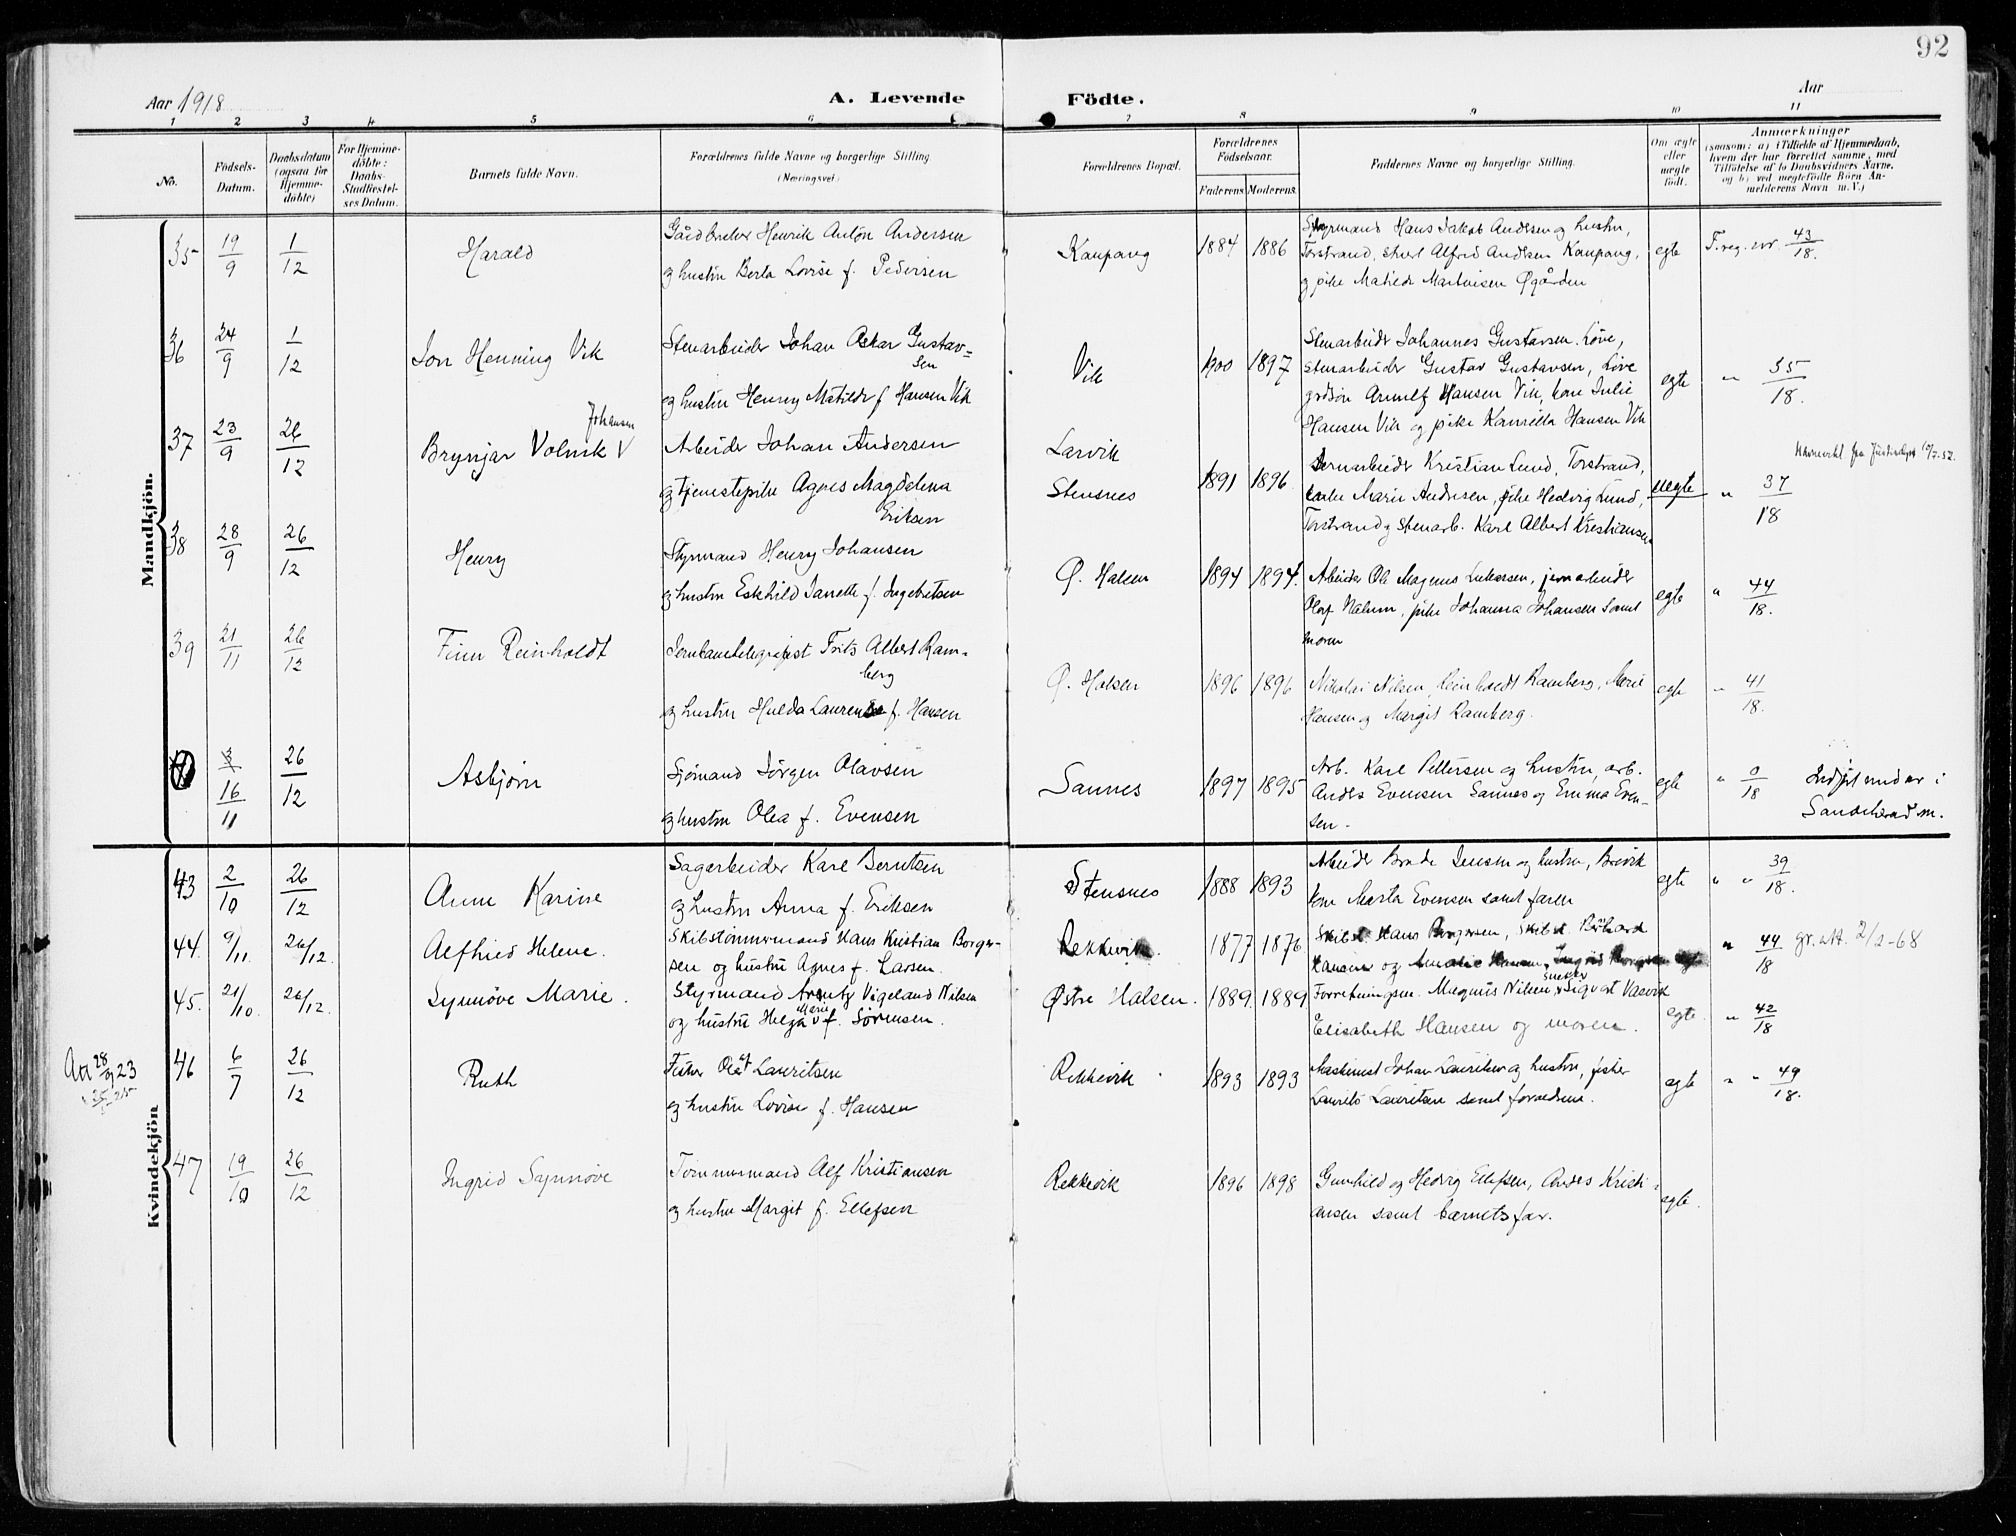 92
Aar 1918
A. Levende Födte.
Aar
1 2 3 4 5 6 7 8 9 10 11
No.
Födsels-Datum.
Daabsdatum (ogsaa for Hjemme-döbte)
For Hjemme-döbte: Daabs-Stadfæstel-ses Datum.
Barnets fulde Navn.
Forældrenes fulde Navne og borgerlige Stilling (Næringsvei)
Forældrenes Bopæl.
Forældrenes Födselsaar.
Faderens. Moderens.
Faddernes Navne og borgerlige Stilling.
Om ægte eller uægte födt.
Anmærkninger
(saasom: a) i Tilfælde af Hjemmedaab,
hvem der har forrettet samme, med
Tilföielse af to Daabsvidners Navne.
og b) ved uægtefödte Börn An-
melderens Navn m. V.)
Mandkjön.
35 19/9 1/12 Harald
Gårdbruker Henrik Anton Andersen
og hustru Berta Lovise f. Pedersen
Kaupang 1884 1886
Styrmand Hans Jakob Andersen og hustru,
Torstrand, Alfred Andersen Kaupang,
og pike Matilde Martinsen Øgården
egte F. reg. nr. 43/18.
36 24/9 1/12 Jon Henning Vik
Stenarbeider Johan Oskar Gustav-
sen
og hustru Henny Matilde f. Hansen Vik
Vik 1900 1897
Stenarbeider Johannes Gustavsen. Løve,
stenarbeider Gustav Gustavsen, Løve
Hansen Vik, kone Julie
Hansen Vik og pike Hansen Vik
egte " 35/18.
37 23/9 26/12 Brynjar Volmik V Johansen
Arbeider Johan Andersen
og tjenestepike Agnes Magdelena
Eriksen
Larvik
Stensnes 1891 1896
Kristian Lund, Torstrand,
Marie Andersen, pike Hedvig Lund,
Torstrand og stenarb. Karl Albert Kristiansen
uegte " 37/18
38 28/9 26/12 Henry
Styrmand Henry Johansen
og hustru Eskhild Janette f. Ingebretsen
Ø. Halsen 1894 1894.
Arbeider Ole Magnus, jernarbeider
Olaf Nalum, pike Johanna Johansen samt
moren
egte " 44/18.
39 21/11 26/12 Finn Reinholdt
Jernbanetelegrafist Frits Albert Ram-
berg
og hustru Hulda f. Hansen
Ø. Halsen 1896 1896
Nikolai Nilsen, Reinholdt Ramberg, Marie
Hansen og Margit Ramberg.
egte " 41/18.
16/11 26/12 Asbjørn
Sjømand Jørgen Olavsen
og hustru Olea f. Evensen
Sannes 1897 1895
Arb. Karl Pettersen og hustru, arb.
Anders Evensen Sannes og Emma Even-
sen.
egte " 0/18 Indført under i
Sandeherad m.
Kvindekjön
43 2/10 26/12 Anne Karine
Sagarbeider Karl Berntsen
og hustru Anna f. Eriksen
Stensnes 1888 1893
Arbeider Jensen og hustru, Brevik
kone Marta Evensen samt faren
egte " " 39/18.
44. 9/11. 26/12. Alfhild Helene.
Skibstømmermand Hans Kristian Borger-
sen og hustru Agnes f. Larsen.
Rekkevik. 1877 1876
Skibst. Hans Borgersen, Skibst.
Hansen og Ingrid Borgersen
egte " 44/18 gr. att. 2/2-68
45. 21/10. 26/12. Synnøve Marie.
Styrmand Arentz Vigeland Nilsen
og hustru Helga Marie f. Sørensen.
Østre Halsen. 1889. 1889
Forretningsm. Magnus Nilsen, snekker Sigvart Vasvik
Elisabeth Hansen og moren.
egte. " 42/18
Att 28/9 23
46 6/7 26/12 Ruth
Fisker Olaf Lauritsen
og hustru Lovise f. Hansen
Rekkevik 1893 1893
Maskinist Johan Lauritsen og hustru, fisker
Laurits Lauritsen samt forældrene.
egte " " 49/18.
47 19/10 26/12 Ingrid Synnøve
Tømmermand Alf Kristiansen
og hustru Margit f. Ellefsen
Rekkevik 1896 1898
Gunhild og Hedvig Ellefsen, Anders Kristi-
ansen samt barnets far.
egte.